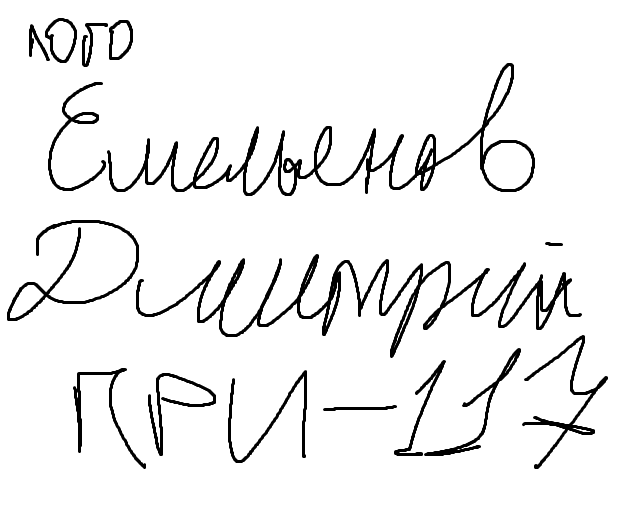 лого
Емельянов
Дмитрий
ПРИ-117